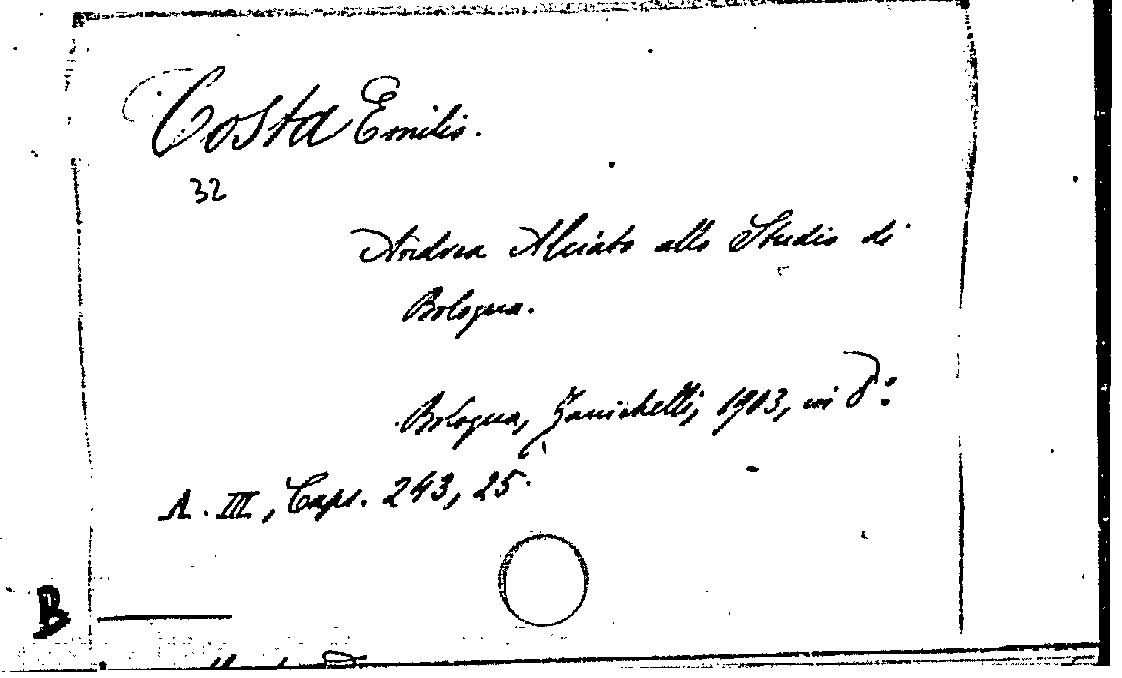 Costa Emilio.
32
Andrea Alciato allo Studio di
Bologna.
Bologna, Zanichelli, 1903, in 8°.
A. III, Caps. 243, 25.
B